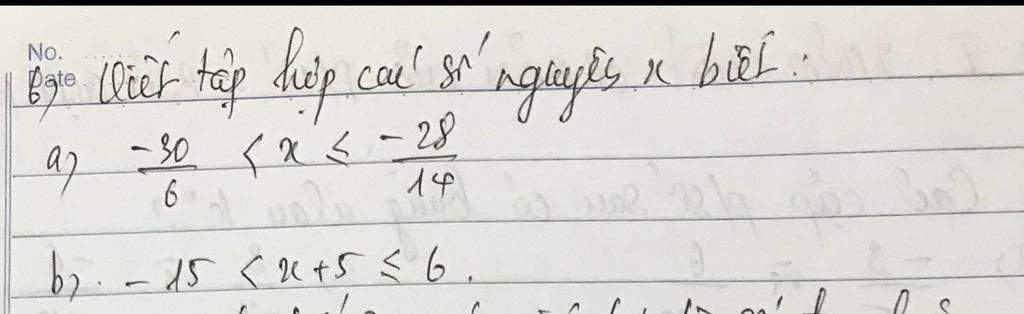 No.
Date
6) Viết tập hợp các số nguyên x biết:
a) -30/6 < x ≤ -28/14
b). -15 < x+5 ≤ 6.